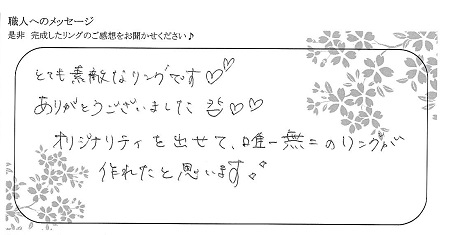 職人へのメッセージ
是非 完成したリングのご感想をお聞かせください♪
とても素敵なリングです♡♡
ありがとうございました♡♡
オリジナリティを出せて、唯一無二のリングが
作れたと思います